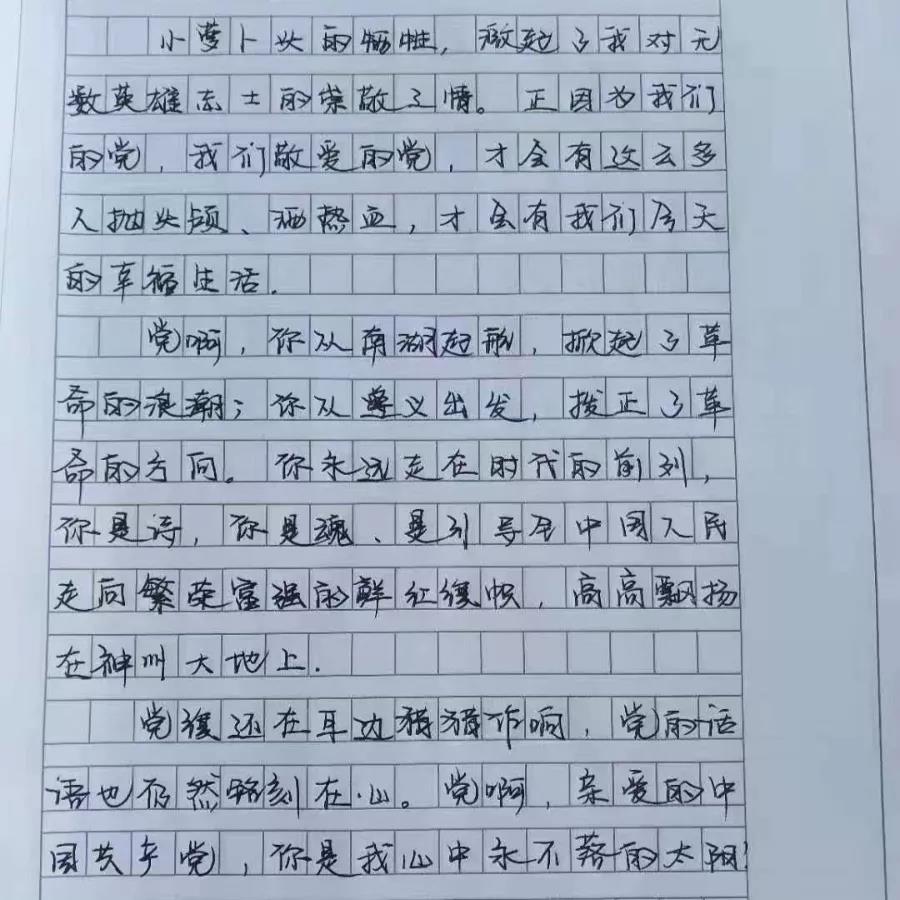 小萝卜头的牺牲，激起了我对无
数英雄志士的崇敬之情。正因为我们
的党，我们敬爱的党，才会有这么多
人抛头颅、洒热血，才会有我们今天
的幸福生活.
党啊，你从南湖起航，掀起了革
命的浪潮；你从遵义出发，拨正了革
命的方向。你永远走在时代的前列，
你是诗，你是魂、是引导全中国人民
走向繁荣富强的鲜红旗帜，高高飘扬
在神州大地上.
党旗还在耳边猎猎作响，党的话
语也仍然铭刻在心。党啊，亲爱的中
国共产党，你是我心中永不落的太阳！